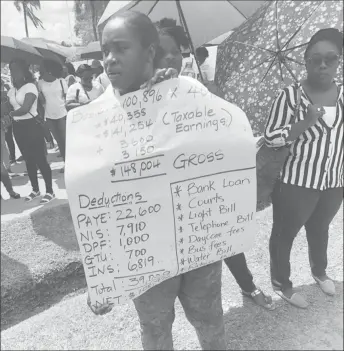 100,896 x 40
40,345
41,254
(Taxable Earnings)
3602
3150
$148,004 GROSS
Deductions
PAYE: 22,600
NIS: 7,910
DPF: 1,000
GTU: 700
INS: 6819
Total:
NET
* Bank Loan
* Courts
* Light Bill
* Telephone Bill
* Daycare fees
* Bus fares
* Water Bill